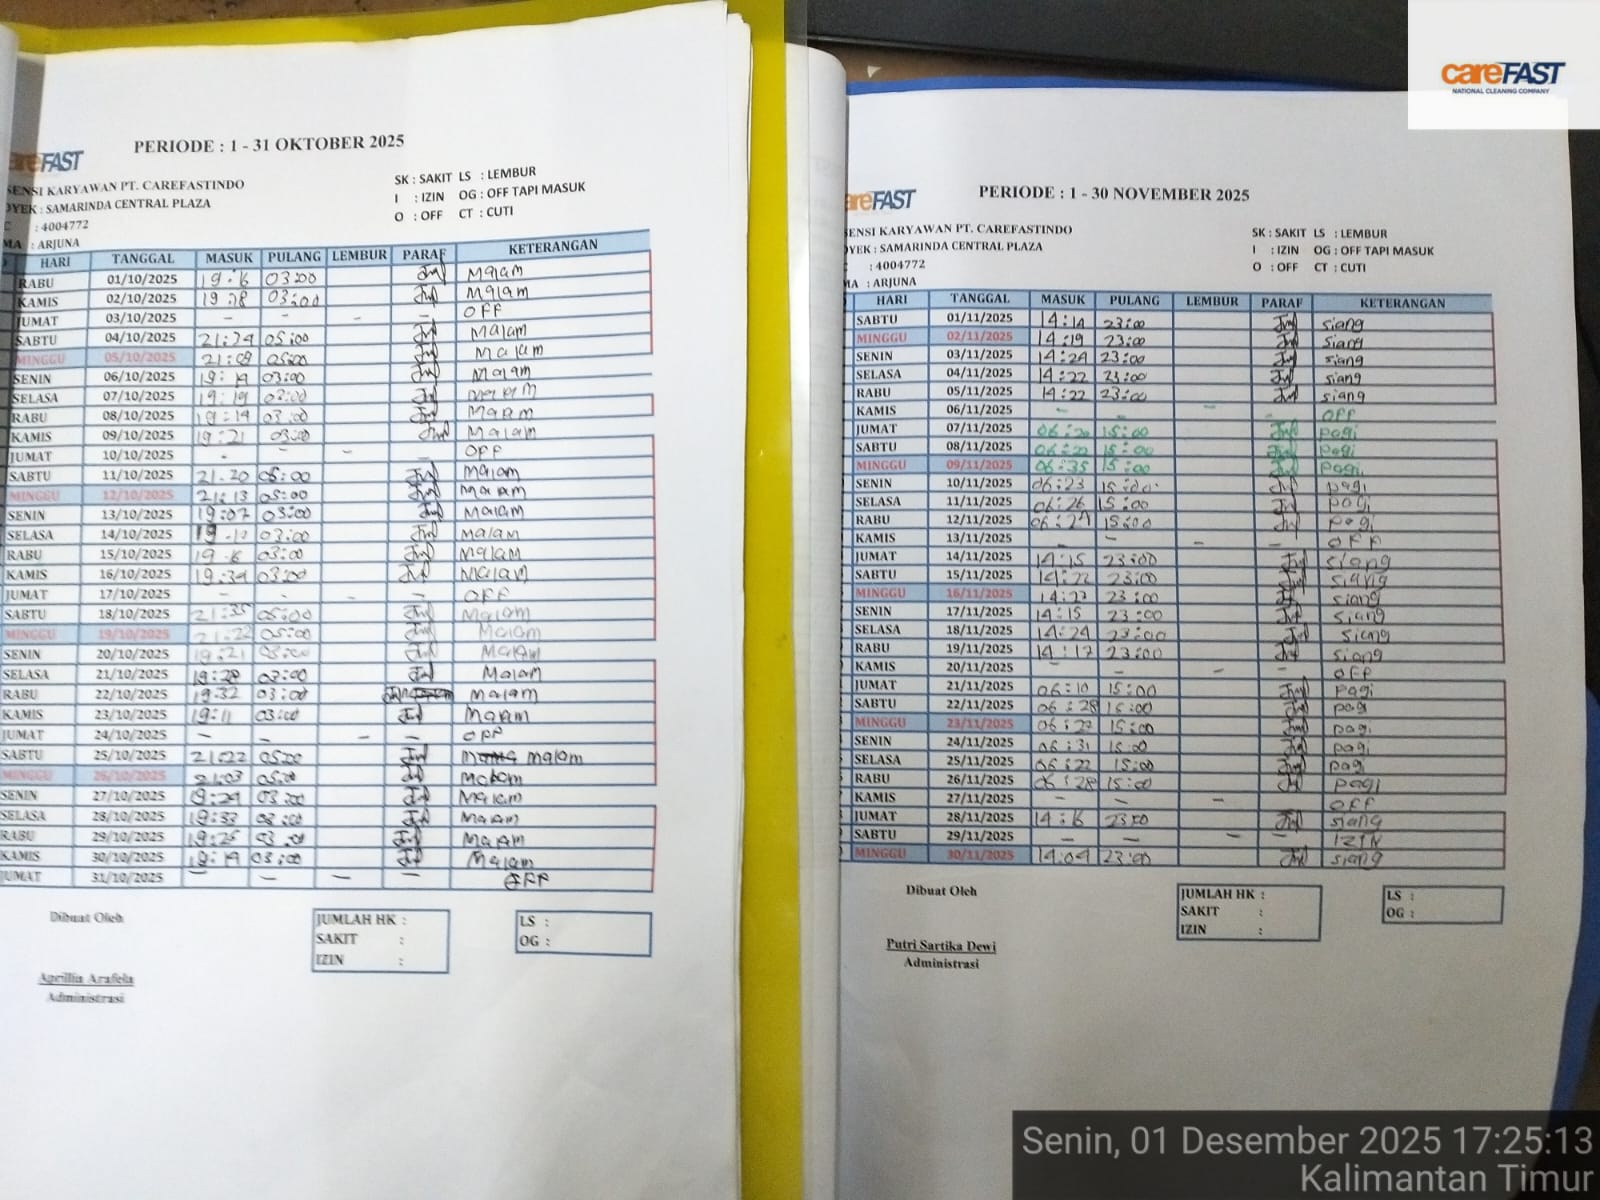 PERIODE : 1 - 31 OKTOBER 2025
areFAST
SENSI KARYAWAN PT. CAREFASTINDO
OYEK : SAMARINDA CENTRAL PLAZA
: 4004772
MA : ARJUNA
SK : SAKIT LS : LEMBUR
I : IZIN OG : OFF TAPI MASUK
O : OFF CT : CUTI
HARI TANGGAL MASUK PULANG LEMBUR PARAF KETERANGAN
RABU 01/10/2025 03:00 Malam
KAMIS 02/10/2025 19:28 03:00 Malam
JUMAT 03/10/2025 - - - - OFF
SABTU 04/10/2025 21:24 05:00 Malam
MINGGU 05/10/2025 21:09 05:00 Malam
SENIN 06/10/2025 19:19 03:00 Malam
SELASA 07/10/2025 19:19 03:00 Malam
RABU 08/10/2025 19:19 03:00 Malam
KAMIS 09/10/2025 19:21 03:00 Malam
JUMAT 10/10/2025 - - - - OFF
SABTU 11/10/2025 21.20 05:00 Malam
MINGGU 12/10/2025 21:13 05:00 Malam
SENIN 13/10/2025 19:07 03:00 Malam
SELASA 14/10/2025 03:00 Malam
RABU 15/10/2025 03:00 Malam
KAMIS 16/10/2025 19:34 03:00 Malam
JUMAT 17/10/2025 - - - - OFF
SABTU 18/10/2025 21:35 05:00 Malam
MINGGU 19/10/2025 21:22 05:00 Malam
SENIN 20/10/2025 19:21 03:00 Malam
SELASA 21/10/2025 19:28 03:00 Malam
RABU 22/10/2025 19:32 03:00 Malam
KAMIS 23/10/2025 19:11 03:00 Malam
JUMAT 24/10/2025 - - - - OFF
SABTU 25/10/2025 21:22 05:00 Malam
MINGGU 26/10/2025 21:03 05:00 Malam
SENIN 27/10/2025 19:29 03:00 Malam
SELASA 28/10/2025 19:33 03:00 Malam
RABU 29/10/2025 19:25 03:00 Malam
KAMIS 30/10/2025 19:19 03:00 Malam
JUMAT 31/10/2025 - - - - OFF
Dibuat Oleh
JUMLAH HK :
SAKIT :
IZIN :
LS :
OG :
Aprillia Arafela
Administrasi
careFAST
NATIONAL CLEANING COMPANY
areFAST
PERIODE : 1 - 30 NOVEMBER 2025
SENSI KARYAWAN PT. CAREFASTINDO
OYEK : SAMARINDA CENTRAL PLAZA
: 4004772
MA : ARJUNA
SK : SAKIT LS : LEMBUR
I : IZIN OG : OFF TAPI MASUK
O : OFF CT : CUTI
HARI TANGGAL MASUK PULANG LEMBUR PARAF KETERANGAN
SABTU 01/11/2025 14:14 23:00 siang
MINGGU 02/11/2025 14:19 23:00 siang
SENIN 03/11/2025 14:24 23:00 siang
SELASA 04/11/2025 14:22 23:00 siang
RABU 05/11/2025 14:22 23:00 siang
KAMIS 06/11/2025 - - - - OFF
JUMAT 07/11/2025 06:20 15:00 pagi
SABTU 08/11/2025 06:22 15:00 pagi
MINGGU 09/11/2025 06:35 15:00 pagi
SENIN 10/11/2025 06:23 15:00 pagi
SELASA 11/11/2025 06:26 15:00 pagi
RABU 12/11/2025 06:27 15:00 pagi
KAMIS 13/11/2025 - - - - OFF
JUMAT 14/11/2025 14:15 23:00 siang
SABTU 15/11/2025 14:22 23:00 siang
MINGGU 16/11/2025 14:27 23:00 siang
SENIN 17/11/2025 14:15 23:00 siang
SELASA 18/11/2025 14:24 23:00 siang
RABU 19/11/2025 14:17 23:00 siang
KAMIS 20/11/2025 - - - - OFF
JUMAT 21/11/2025 06:10 15:00 pagi
SABTU 22/11/2025 06:28 15:00 pagi
MINGGU 23/11/2025 06:27 15:00 pagi
SENIN 24/11/2025 06:31 15:00 pagi
SELASA 25/11/2025 06:22 15:00 pagi
RABU 26/11/2025 06:28 15:00 pagi
KAMIS 27/11/2025 - - - OFF
JUMAT 28/11/2025 23:00 siang
SABTU 29/11/2025 - - - - IZIN
MINGGU 30/11/2025 14:04 23:00 siang
Dibuat Oleh
JUMLAH HK :
SAKIT :
IZIN :
LS :
OG :
Putri Sartika Dewi
Administrasi
Senin, 01 Desember 2025 17:25:13
Kalimantan Timur